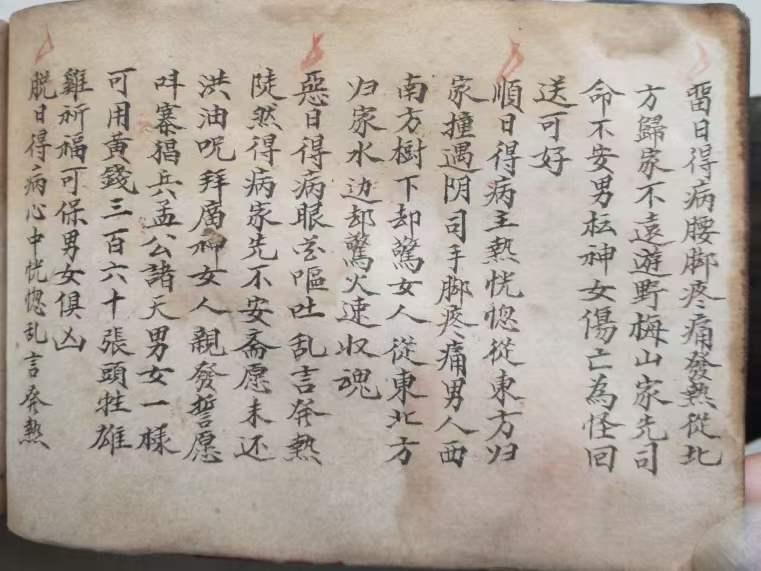 畱日得病腰脚疼痛發熱從北
方歸家不遠遊野梅山家先司
命不安男枟神女傷亡為怪回
送可好
順日得病主熱恍惚從東方归
家撞遇阴司手脚疼痛男人西
南方樹下却驚女人從東北方
归家水边却驚火速収魂
惡日得病眼花嘔吐乱言發熱
陡然得病家先不安斋愿未还
洪油呪拜廣神女人親發誓愿
呌寨猖兵孟公諸天男女一樣
可用黄錢三百六十張頭牲雄
雞祈福可保男女俱凶
脱日得病心中恍惚乱言發熱